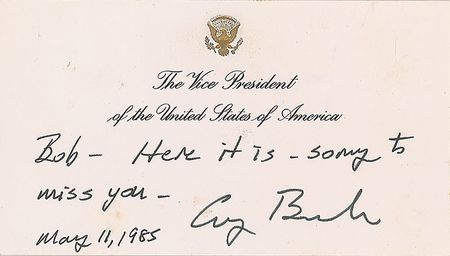 The Vice President
of the United States of America
Bob – Here it is – sorry to
miss you –
Gg Bush
May 11, 1985